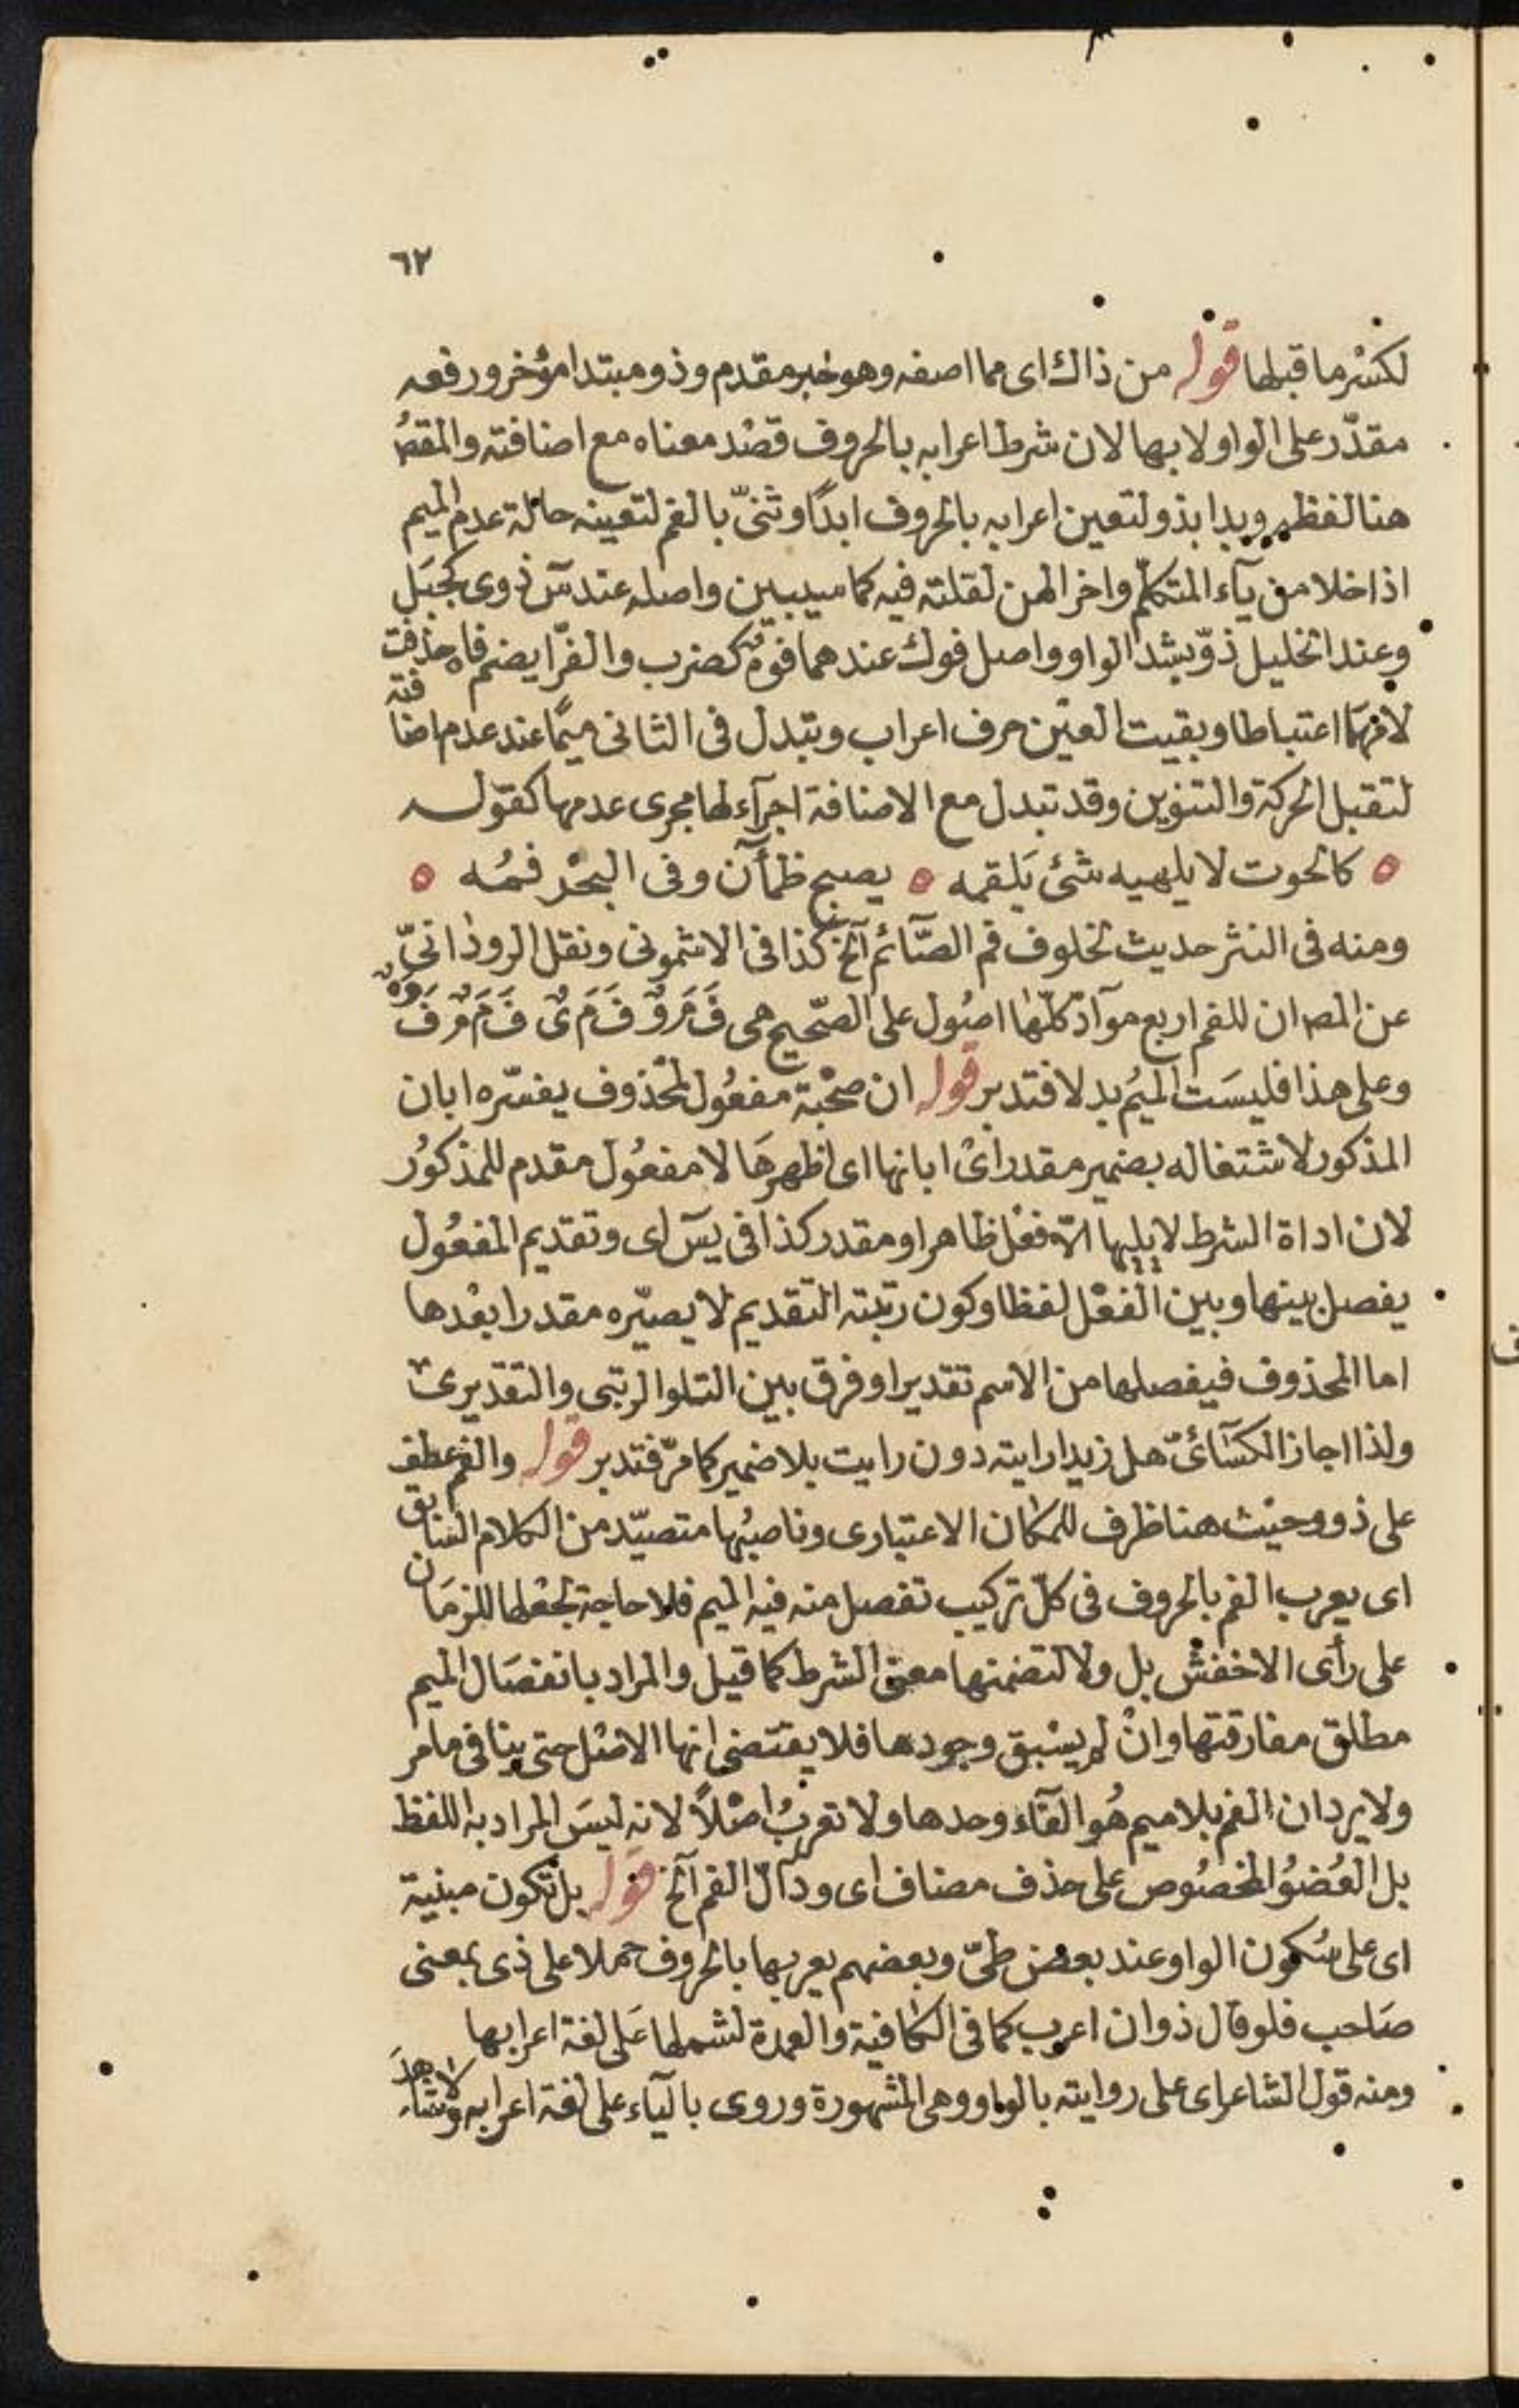 ٦٢
لكسْر ما قبلها قوله من ذاك اى مما اصفه وهو خبر مقدم وذو مبتدا مؤخر ورفعه
مقدّر على الواو لا بها لان شرط اعرابه بالحروف قصْد معناه مع اضافته والمقصُ
هنا لفظه وبدا بذو لتعين اعرابه بالحروف ابدًا وثنىّ بالفم لتعينه حالة عدم الميم
اذا خلا من يآء المتكلّم واخر الهن لقلته فيه كما سيبين واصله عند سٓ ذوى كجبَل
وعند الخليل ذوّ بشد الواو واصل فوك عندهما فوهٌ كضرب والفرّا بضم فاه حذفت
لامهمَا اعتباطا وبقيت العيْن حرف اعراب وتبدل فى الثانى ميمًا عند عدم اضافته
لتقبل الحركة والتنوين وقد تبدل مع الاضافة اجرآء لها مجرى عدمها كقوله
كالحوت لا يلهيه شئ يَلقمه يصبح ظمأٓن وفى البحْر فمُه
ومنه فى النثر حديث لخلوف فم الصّآئم آلخ كذا فى الاشمونى ونقل الروذانىّ
عن المصران للفم اربع موآدّ كلّها اصُول على الصّحيح هى فَ مَ وٌ فَ مَ ىٌ فَ مَ مٌ فَ وَ هٌ
وعلى هذا فليسَت الميُم بدلا فتدبر قوله ان صحْبة مفعُول لمحْذوف يفسّره ابان
المذكور لاشتغاله بضمير مقدر اىْ ابانها اى اظهرهَا لا مفعُول مقدم للمذكوُر
لان اداة الشرط لا يليها الّا فعْل ظاهر او مقدر كذا فى يسٓ اى وتقديم المفعُول
يفصل بينها وبين الفعْل لفظا وكون رتبته التقديم لا يصيّره مقدرا بعْدها
اما المحذوف فيفصلها من الاسم تقديرا وفرق بين التلو الرتبى والتقديرىّ
ولذا اجاز الكسَآئىّ هل زيدا رايته دون رايت بلا ضمير كما مرّ فتدبر قوله والفم عطف
على ذو وحيْث هنا ظرف للمكان الاعتبارى وناصبُها متصيّد من الكلام السَابق
اى يعرب الفم بالحروف فى كلّ تركيب تفصل منه فيه الميم فلا حاجة لجعْلها للزمَان
على رأى الاخفشْ بل ولا لتضمنها معنى الشرط كما قيل والمراد بانفصَال الميم
مطلق مفارقتها وانْ لم يسْبق وجودها فلا يقتضى انها الاصْل حتى ينافى ما مر
ولا يرد ان الفم بلا ميم هُو الفآء وحدها ولا تعربُ اصْلاً لانه ليسَ المراد به اللفظ
بل العُضوُ المخصُوص على حذف مضاف اى ودآلّ الفم آلخ قوله بل تكون مبنية
اى على سُكون الواو عند بعض طىّ وبعضهم يعربها بالحروف حملا على ذى بمعنى
صَاحب فلو قال ذو ان اعرب كما فى الكافية والعمدة لشملها عَلى لغة اعرابها
ومنه قول الشاعر اى على روايته بالواو وهى المشهورة وروى باليآء على لغة اعرابه